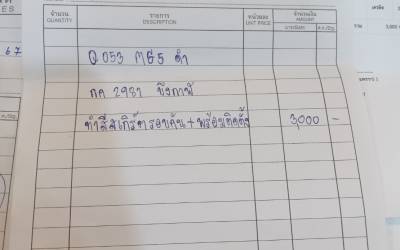 จำนวน รายการ หน่วยละ จำนวนเงิน
QUANTITY DESCRIPTION UNIT PRICE AMOUNT
Q053 MG5 ดำ
กค 2981 บึงกาฬ
ทำสีสเกิร์ตรอบคัน + พร้อมติดตั้ง 3,000 -
67